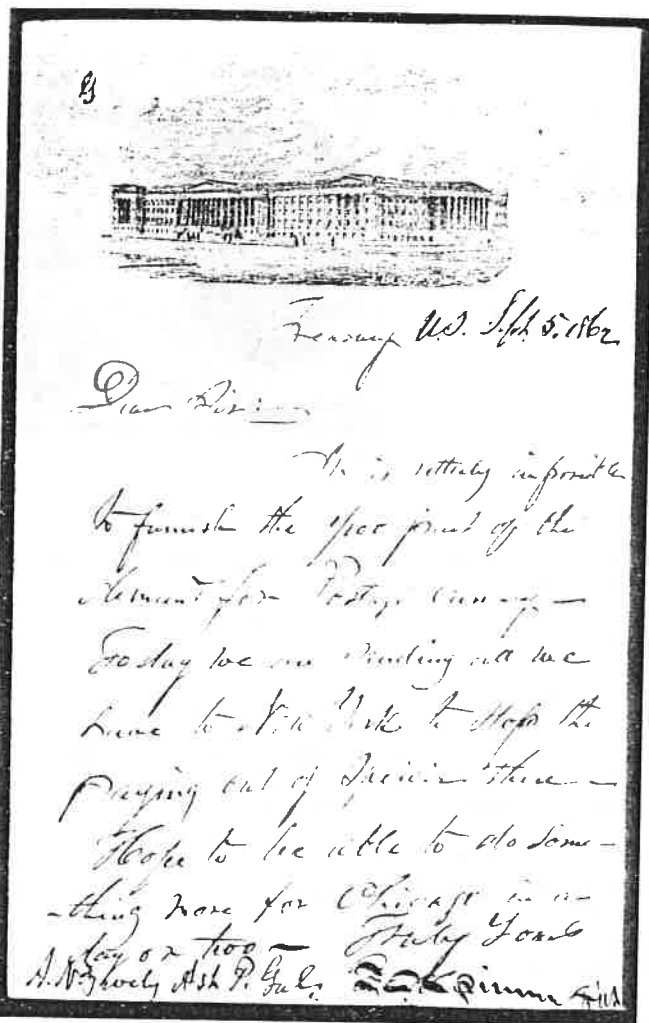 Treasury U.S. Sept. 5. 1862
Dear Sir:
It is utterly impossible
to furnish the part of the
demand for Postage currency —
Today we are sending all we
have to New York to stop the
paying out of there —
Hope to be able to do some-
-thing more for Chicago in a
day or two — Truly Yours